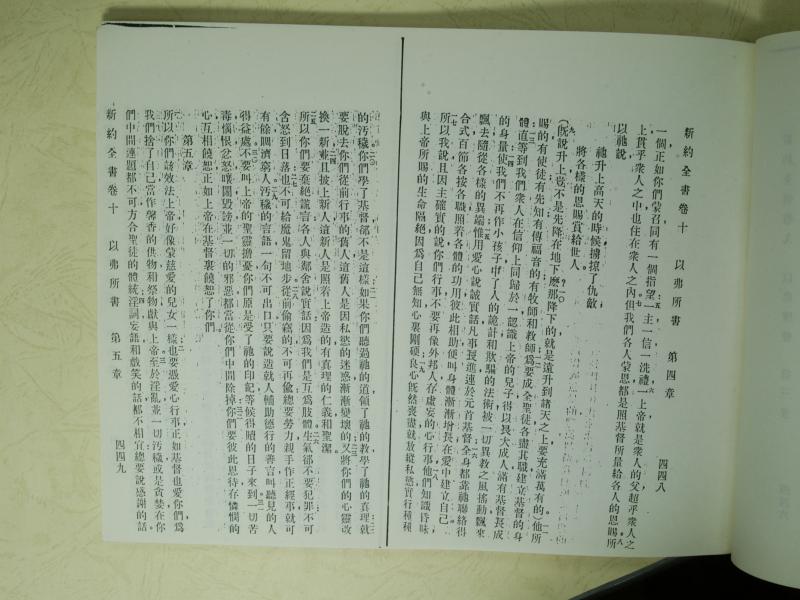 新約全書卷十 以弗所書 第四章 四四八
一個正如你們蒙召同有一個指望一主一信一洗禮一上帝就是衆人的父超乎衆人之
上貫乎衆人之中也住在衆人之內但我們各人蒙恩都是照基督所量給各人的恩賜所
以祂說
祂升上高天的時候擄掠了仇敵
將各樣的恩賜賞給世人
(既說升上豈不是先降在地下麼那降下的就是遠升到諸天之上要充滿萬有的)他所
賜的有使徒有先知有傳福音的有牧師和教師爲要成全聖徒各盡其職建立基督的身
體直等到我們衆人在信仰上同歸於一認識上帝的兒子得以長大成人滿有基督長成
的身量使我們不再作小孩子中了人的詭計和欺騙的法術被一切異教之風搖動飄來
飄去隨從各樣的異端惟用愛心說誠實話凡事長進連於元首基督全身都靠祂聯絡得
合式百節各按各職照着各體的功用彼此相助便叫身體漸漸增長在愛中建立自己
所以我說且因主確實的說你們行事不要再像外邦人存虛妄的心行事他們知識昏昧
與上帝所賜的生命隔絕因爲自己無知心裏剛硬良心既然喪盡就放縱私慾實行種種
的汚穢你們學了基督卻不是這樣如果你們聽過祂的道領了祂的教學了祂的真理就
要脫去你們從前行事的舊人這舊人是因私慾的迷惑漸漸變壞的又將你們的心靈改
換一新並且披上新人這新人是照着上帝造的有真理的仁義和聖潔
所以你們要棄絕謊言各人與鄰舍說實話因爲我們是互爲肢體生氣卻不要犯罪不可
含怒到日落也不可給魔鬼留地步從前偷竊的不可再偸總要勞力親手作正經事就可
有餘賙濟窮人汚穢的言語一句不可出口只要說造就人輔助德行的善言叫聽見的人
得益處不要叫上帝的聖靈擔憂你們原是受了祂的印記等候得贖的日子來到一切苦
毒惱恨忿怒嚷鬧毀謗並一切的邪惡都當從你們中間除掉你們要彼此恩待存憐憫的
心互相饒恕正如上帝在基督裏饒恕了你們
第五章
所以你們該效法上帝好像蒙慈愛的兒女一樣也要憑愛心行事正如基督也愛你們爲
我們捨了自己當作馨香的供物和祭物獻與上帝至於淫亂並一切汚穢或是貪婪在你
們中間連題都不可方合聖徒的體統淫詞妄語和戲笑的話都不相宜總要說感謝的話
新約全書卷十 以弗所書 第五章 四四九